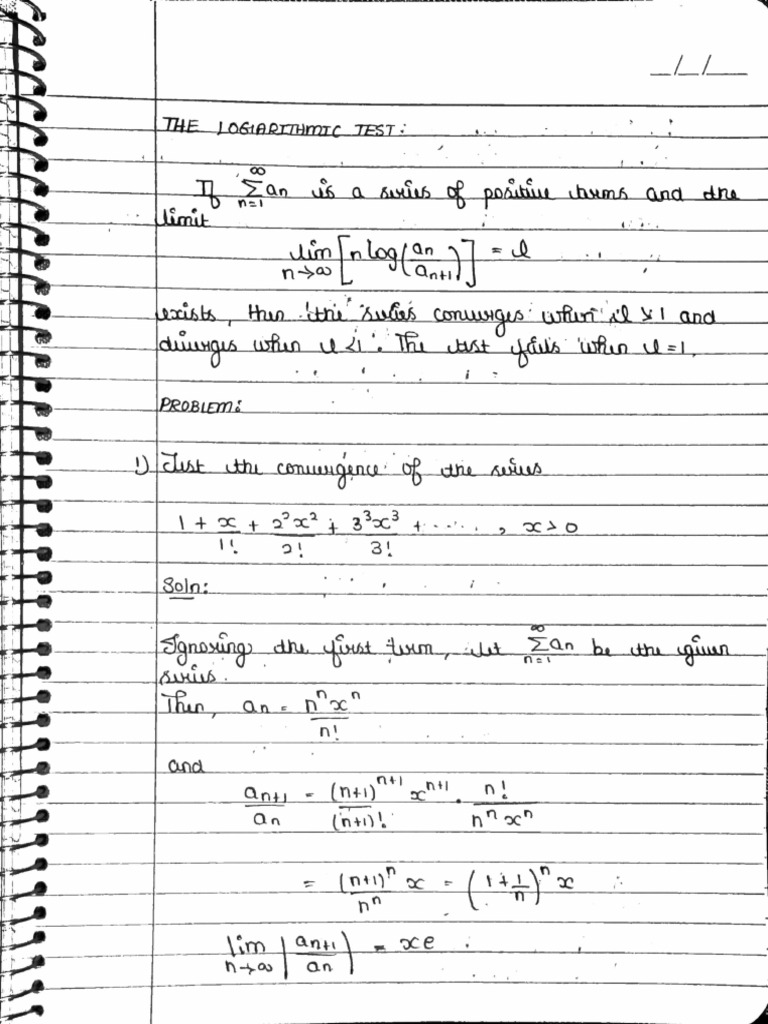 _/_/__
THE LOGARITHMIC TEST:
If ∞∑n=1 an is a series of positive terms and the
limit
lim n→∞ [n log(an/an+1)] = l
exists, then the series converges when l > 1 and
diverges when l < 1. The test fails when l = 1.
PROBLEM:
1) Test the convergence of the series
1 + x/1! + 2²x²/2! + 3³x³/3! + ..... , x > 0
Soln:
Ignoring the first term, let ∞∑n=1 an be the given
series.
Then, an = nⁿxⁿ/n!
and
an+1/an = (n+1)ⁿ⁺¹ xⁿ⁺¹/(n+1)! . n!/nⁿxⁿ
= (n+1)ⁿ x/nⁿ = (1+1/n)ⁿ x
lim n→∞ |an+1/an| = xe .